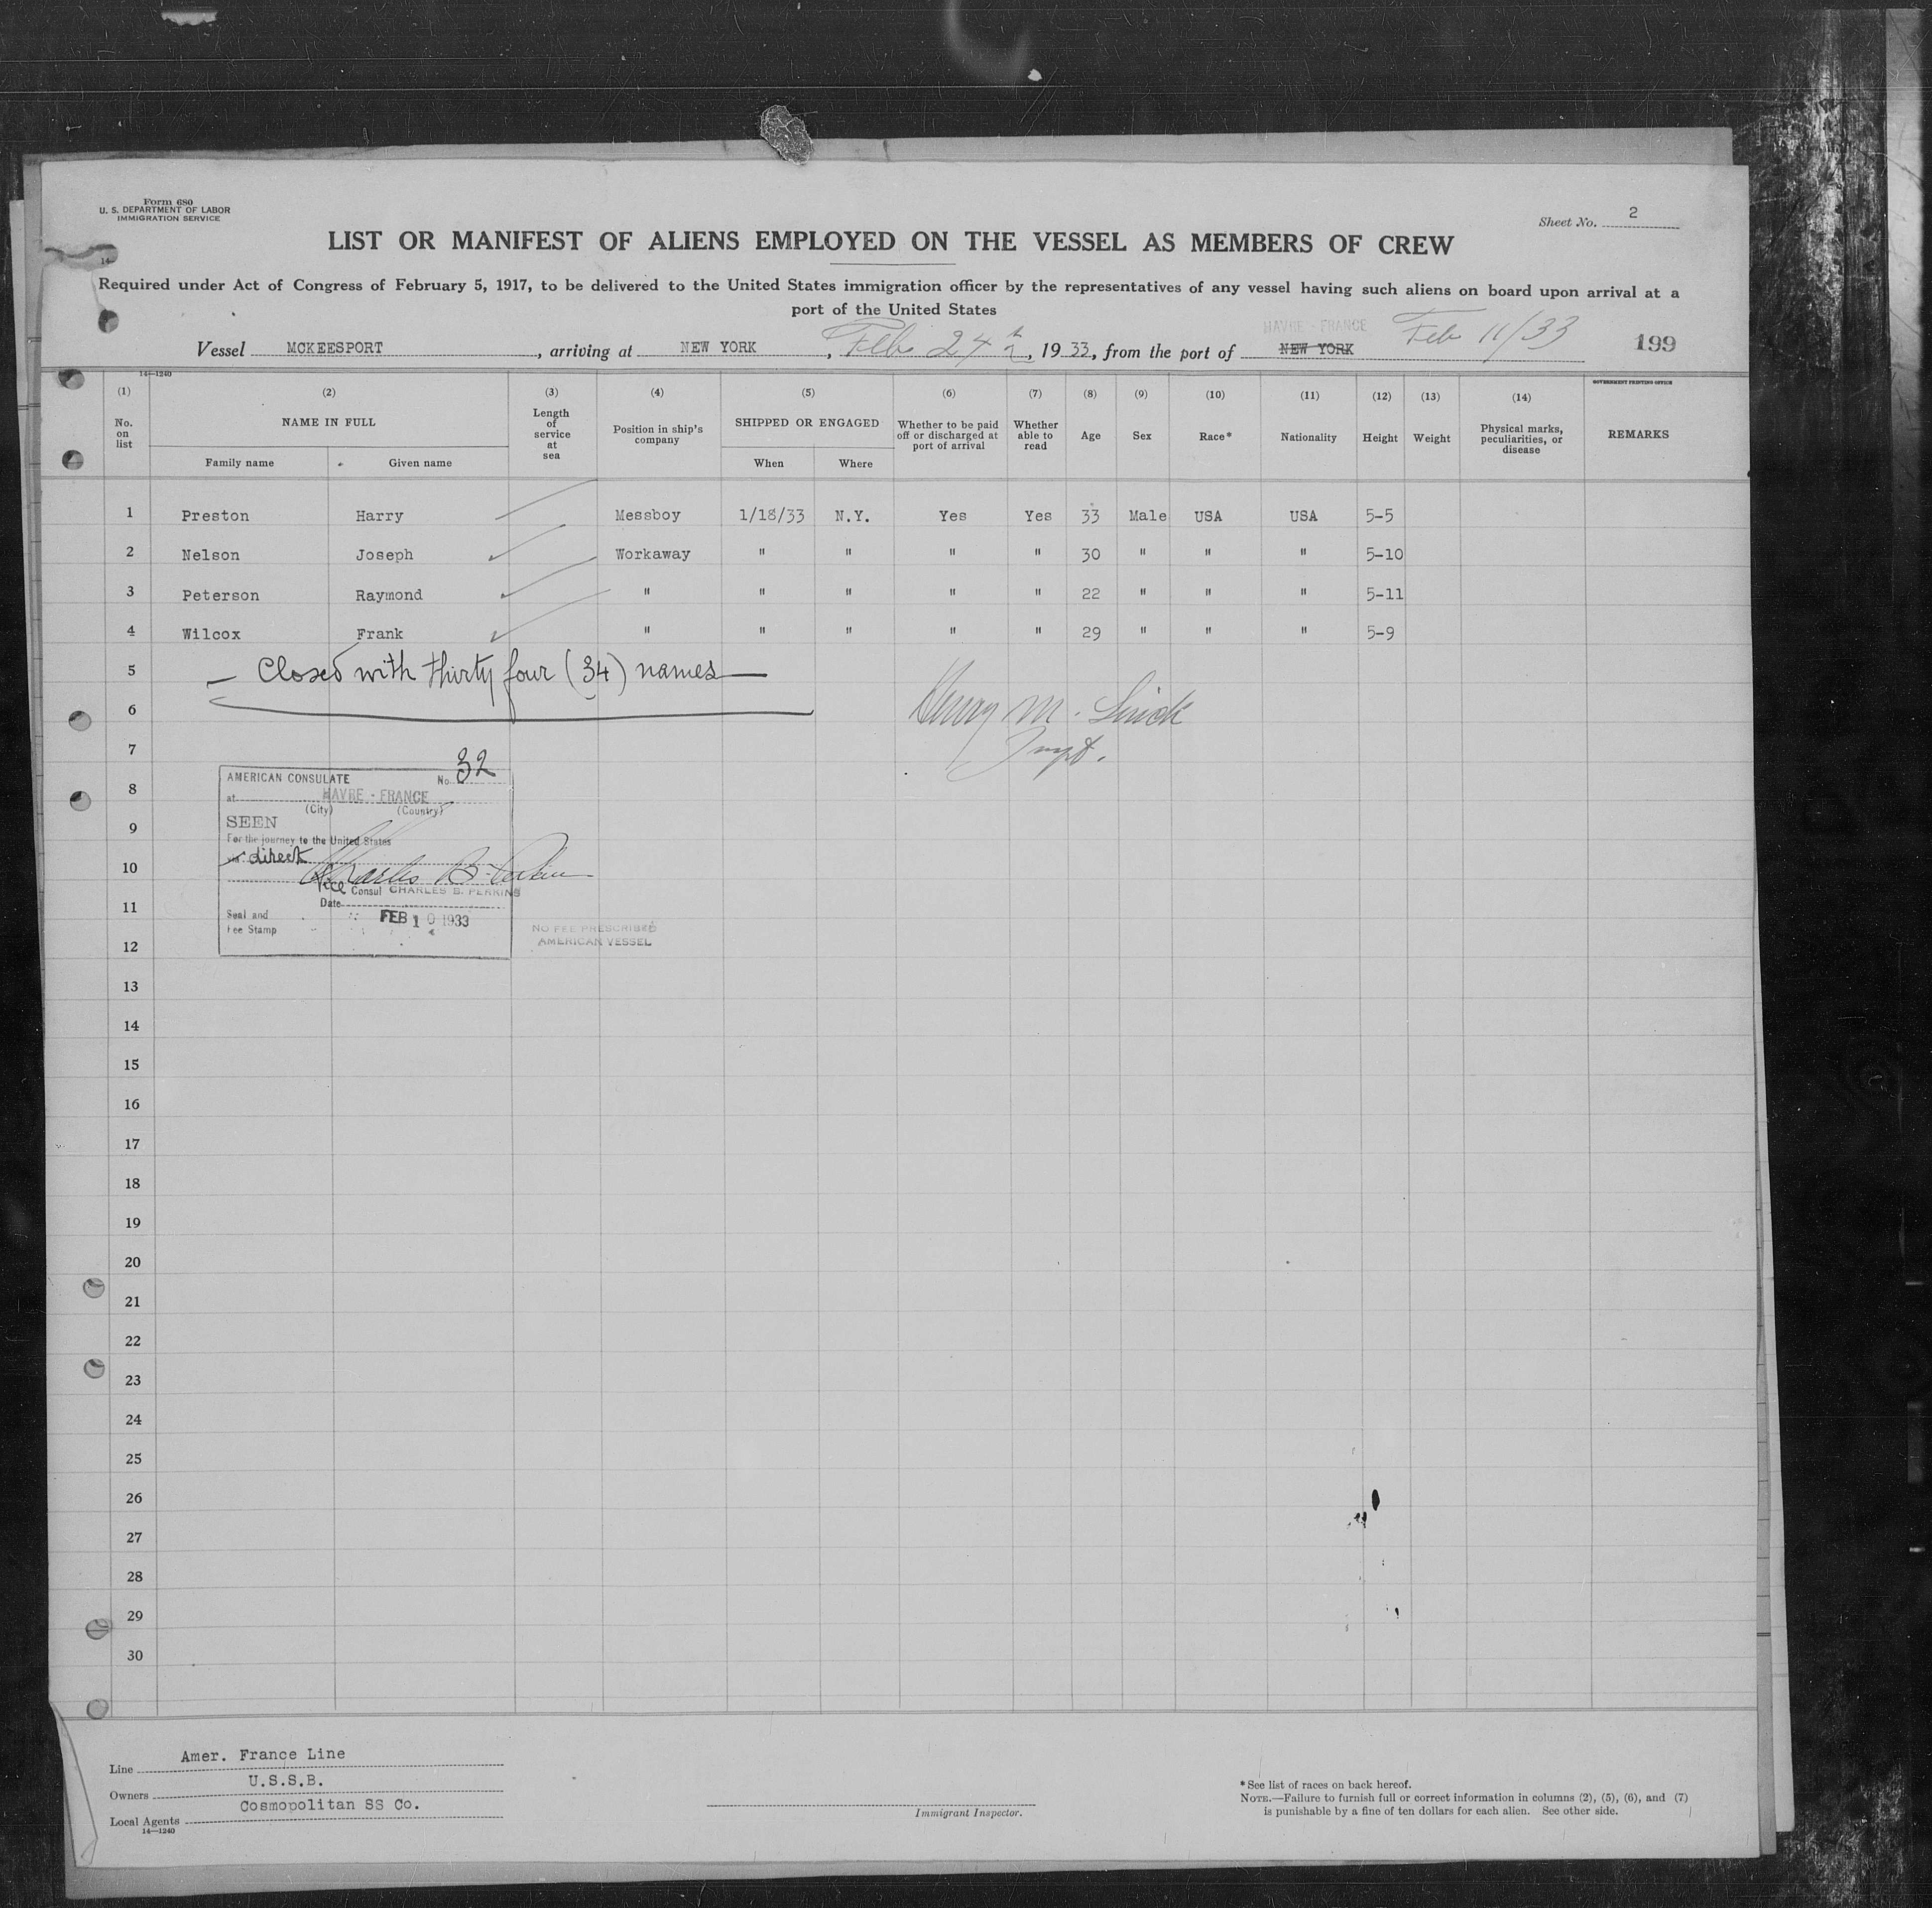 Form 680
U. S. DEPARTMENT OF LABOR
IMMIGRATION SERVICE
Sheet No. 2
LIST OR MANIFEST OF ALIENS EMPLOYED ON THE VESSEL AS MEMBERS OF CREW
14—
Required under Act of Congress of February 5, 1917, to be delivered to the United States immigration officer by the representatives of any vessel having such aliens on board upon arrival at a
port of the United States
HAVRE - FRANCE
Vessel MCKEESPORT, arriving at NEW YORK, Feb 24th, 1933, from the port of NEW YORK Feb 11/33 199
14—1240
GOVERNMENT PRINTING OFFICE
(1) (2) (3) (4) (5) (6) (7) (8) (9) (10) (11) (12) (13) (14)
No. on list NAME IN FULL Length of service at sea Position in ship's company SHIPPED OR ENGAGED Whether to be paid off or discharged at port of arrival Whether able to read Age Sex Race* Nationality Height Weight Physical marks, peculiarities, or disease REMARKS
Family name Given name When Where
1 Preston Harry Messboy 1/18/33 N.Y. Yes Yes 33 Male USA USA 5-5
2 Nelson Joseph Workaway " " " " 30 " " " 5-10
3 Peterson Raymond " " " " " 22 " " " 5-11
4 Wilcox Frank " " " " " 29 " " " 5-9
5 — Closed with thirty four (34) names —
6 Henry M.
7
8
9
10
11
12
13
14
15
16
17
18
19
20
21
22
23
24
25
26
27
28
29
30
AMERICAN CONSULATE No. 32
at HAVRE - FRANCE
(City) (Country)
SEEN
For the journey to the United States
via direct
Charles B. Perkins
Vice Consul CHARLES B. PERKINS
Date
Seal and FEB 10 1933
Fee Stamp
NO FEE PRESCRIBED
AMERICAN VESSEL
Line Amer. France Line
Owners U.S.S.B.
Local Agents Cosmopolitan SS Co.
14—1240
Immigrant Inspector.
*See list of races on back hereof.
NOTE.—Failure to furnish full or correct information in columns (2), (5), (6), and (7)
is punishable by a fine of ten dollars for each alien. See other side.